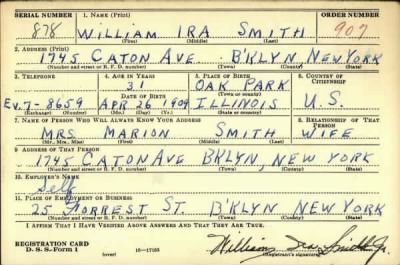 SERIAL NUMBER 1. NAME (Print) ORDER NUMBER
878 WILLIAM IRA SMITH 907
(First) (Middle) (Last)
2. ADDRESS (Print)
1745 CATON AVE B'KLYN NEW YORK
(Number and street or R. F. D. number) (Town) (County) (State)
3. TELEPHONE 4. AGE IN YEARS 5. PLACE OF BIRTH 6. COUNTRY OF CITIZENSHIP
31 OAK PARK
DATE OF BIRTH (Town or county)
EV.7-8659 APR 26 1909 ILLINOIS U.S.
(Exchange) (Number) (Mo.) (Day) (Yr.) (State or country)
7. NAME OF PERSON WHO WILL ALWAYS KNOW YOUR ADDRESS 8. RELATIONSHIP OF THAT PERSON
MRS MARION SMITH WIFE
(Mr., Mrs., Miss) (First) (Middle) (Last)
9. ADDRESS OF THAT PERSON
1745 CATON AVE BKLYN, NEW YORK
(Number and street or R. F. D. number) (Town) (County) (State)
10. EMPLOYER'S NAME
Self
11. PLACE OF EMPLOYMENT OR BUSINESS
25 FORREST ST. B'KLYN NEW YORK
(Number and street or R. F. D. number) (Town) (County) (State)
I AFFIRM THAT I HAVE VERIFIED ABOVE ANSWERS AND THAT THEY ARE TRUE.
REGISTRATION CARD
D. S. S. Form 1 (over) 16-17105 William Ira Smith Jr.
(Registrant's signature)